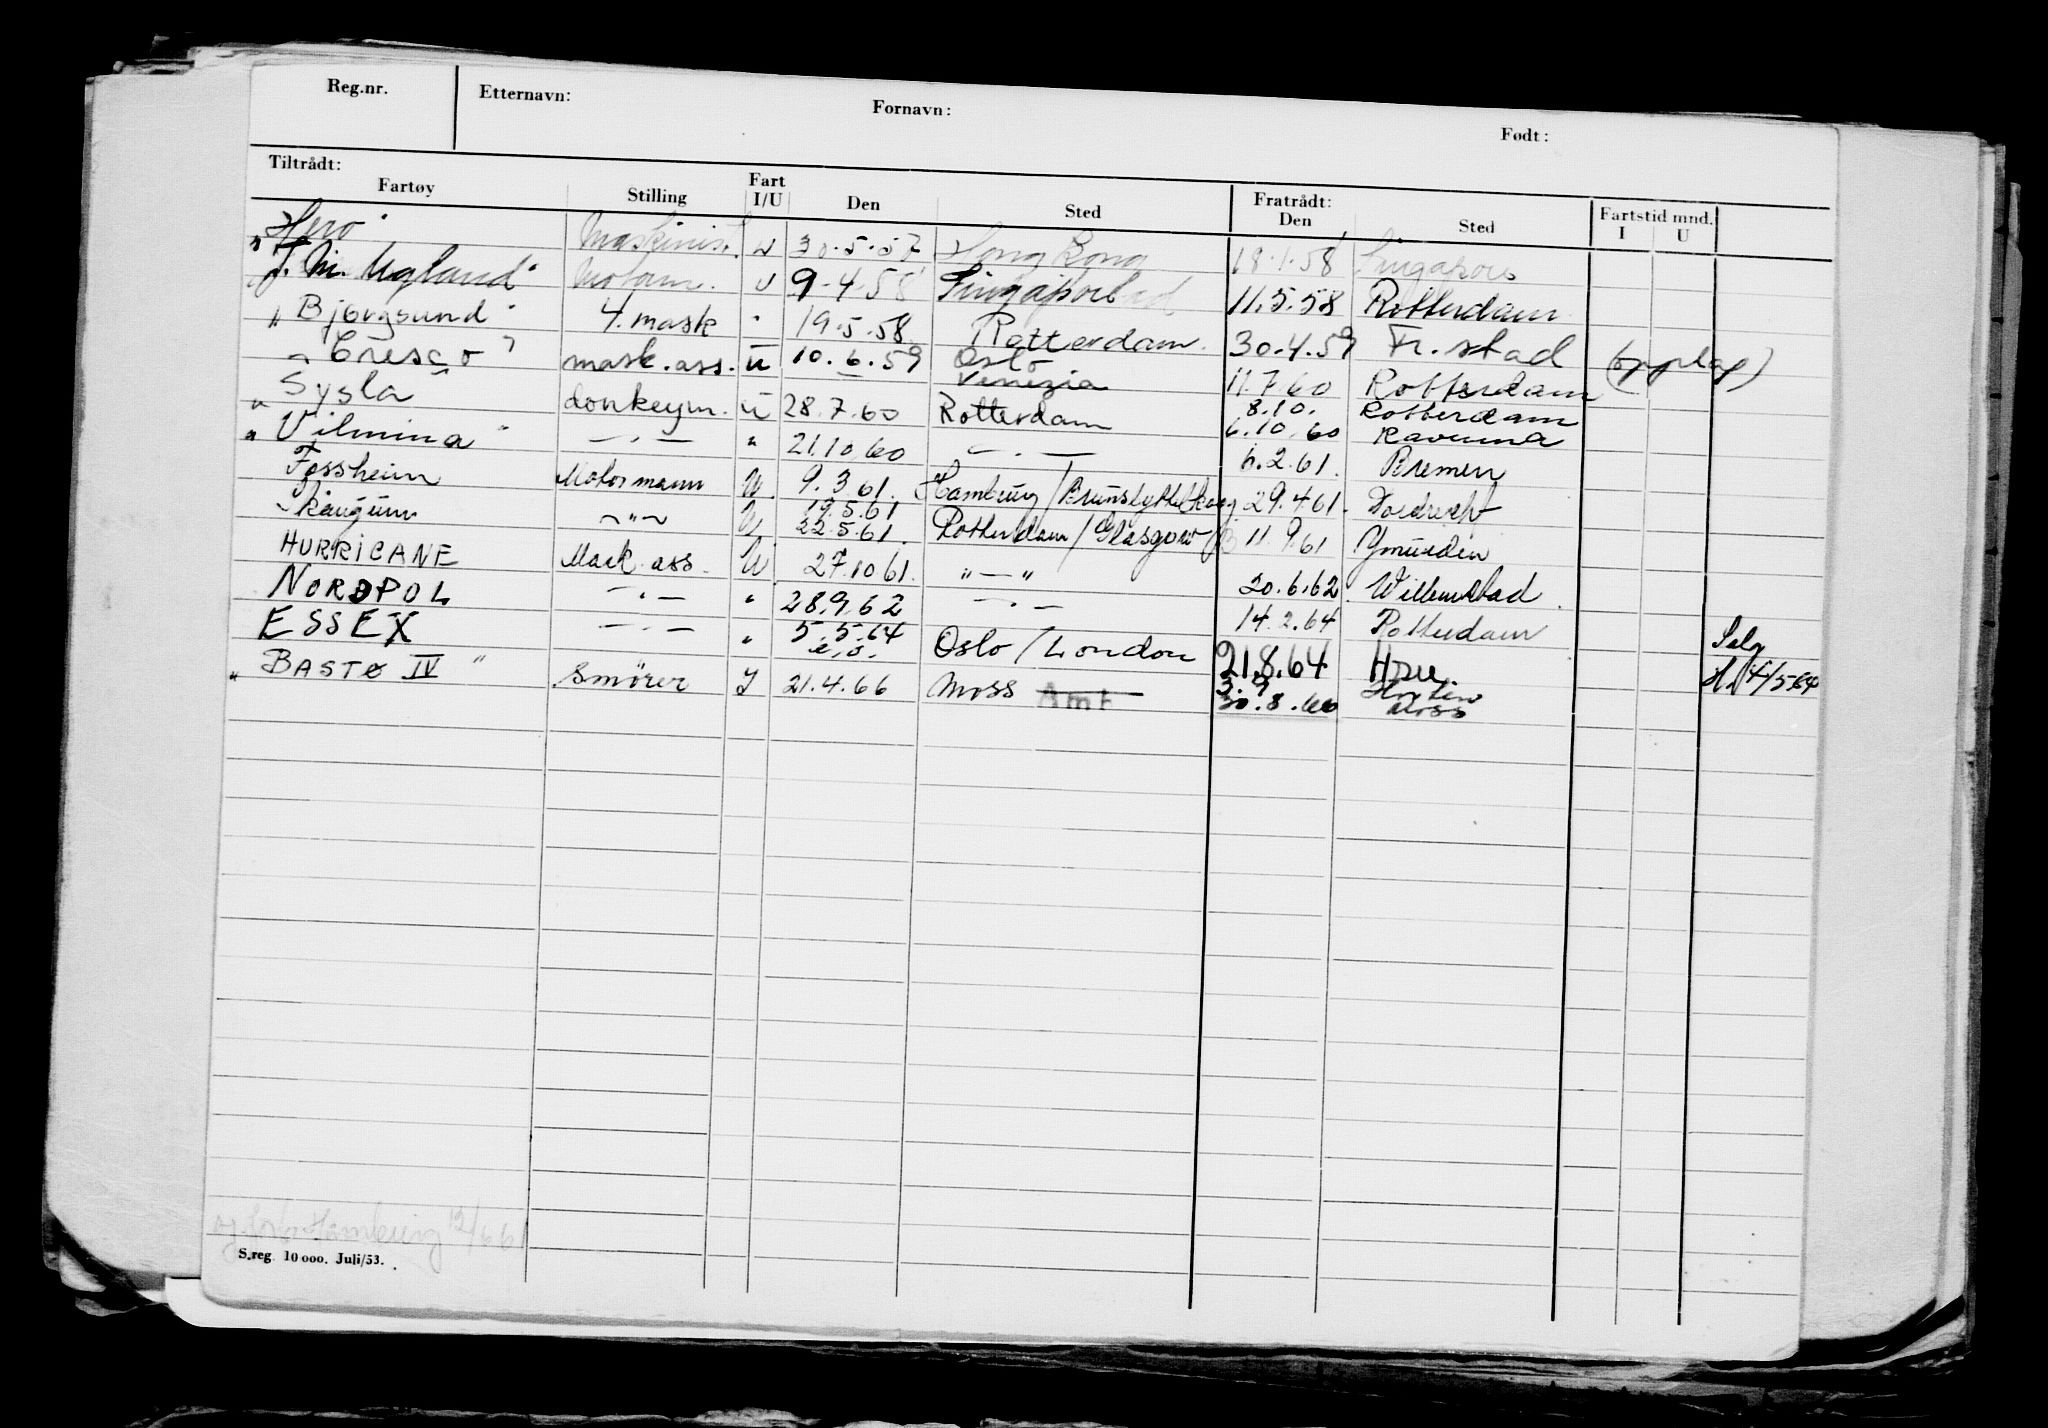 Reg.nr. Etternavn: Fornavn: Født:
Tiltrådt: Fratrådt:
Fartøy Stilling Fart I/U Den Sted Den Sted Fartstid mnd. I U
"Hero" Maskinist. U 30.5.57 Hong Kong 18.1.58 Singapore
"J. M. Ugland" Motorm. U 9-4-58 Singapore 11.5.58 Rotterdam
"Bjørgsund" 4. mask " 19.5.58 Rotterdam. 30.4.59 Fr.stad (opplag)
"Cresco" mask.ass. u 10.6.59 Oslo Venezia 11.7.60 Rotterdam
" Sysla donkeym. u 28.7.60 Rotterdam 8.10. Rotterdam 6.10.60 Ravenna
"Vilmina" — . — " 21.10.60 — . — 6.2.61. Bremen
Fossheim Motormann U. 9.3 61. Hamburg/Brunsbyttelkoog 29.4.61. Dordrecht
Skaugum ~ " ~ U 19.5.61 22.5.61. Rotterdam/Glasgow 11 9.61 Ymuiden
HURRICANE Mask. ass. U 27.10 61. " — " 20.6.62. Willemstad.
NORDPOL — . — " 28.9.62 — . — 14.2.64 Rotterdam
ESSEX — . — " 5.5.64 e.o. Oslo/London 21.8.64 Hou. Salg
"BASTØ IV" Smører I 21.4.66 Moss Amt 3.9 Horten 30.8.66 Moss H. 4/5-64
Hamburg 12/6 61
S.reg. 10 000. Juli/53.